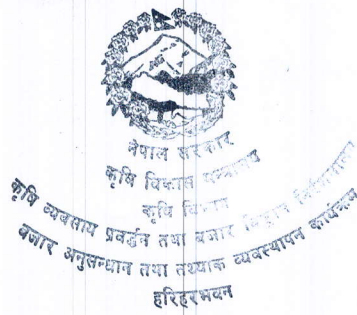 नेपाल सरकार
कृषि विकास मन्त्रालय
कृषि विभाग
कृषि व्यवसाय प्रवर्द्धन तथा बजार विकास निर्देशनालय
बजार अनुसन्धान तथा तथ्यांक व्यवस्थापन कार्यक्रम
हरिहरभवन